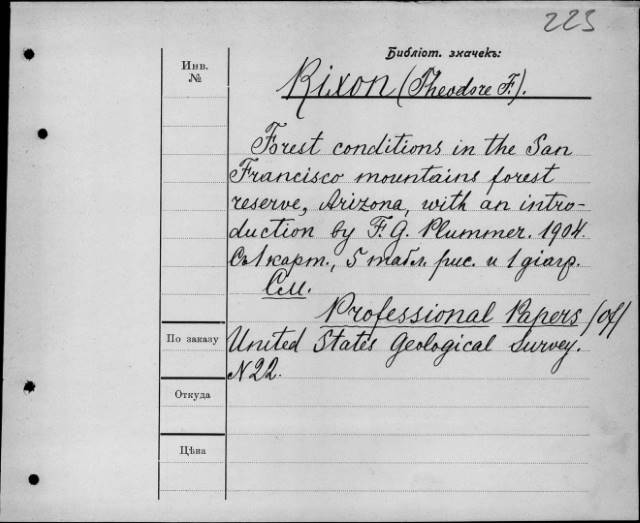 223
Библіот. значекъ:
Инв.
№
Rixon (Theodore F.).
Forest conditions in the San
Francisco mountains forest
reserve, Arizona, with an intro-
duction by F. G. Plummer. 1904.
Съ 1 карт., 5 табл. рис. и 1 діагр.
См.
Professional Papers /of/
По заказу
United States Geological Survey.
N 22.
Откуда
Цѣна